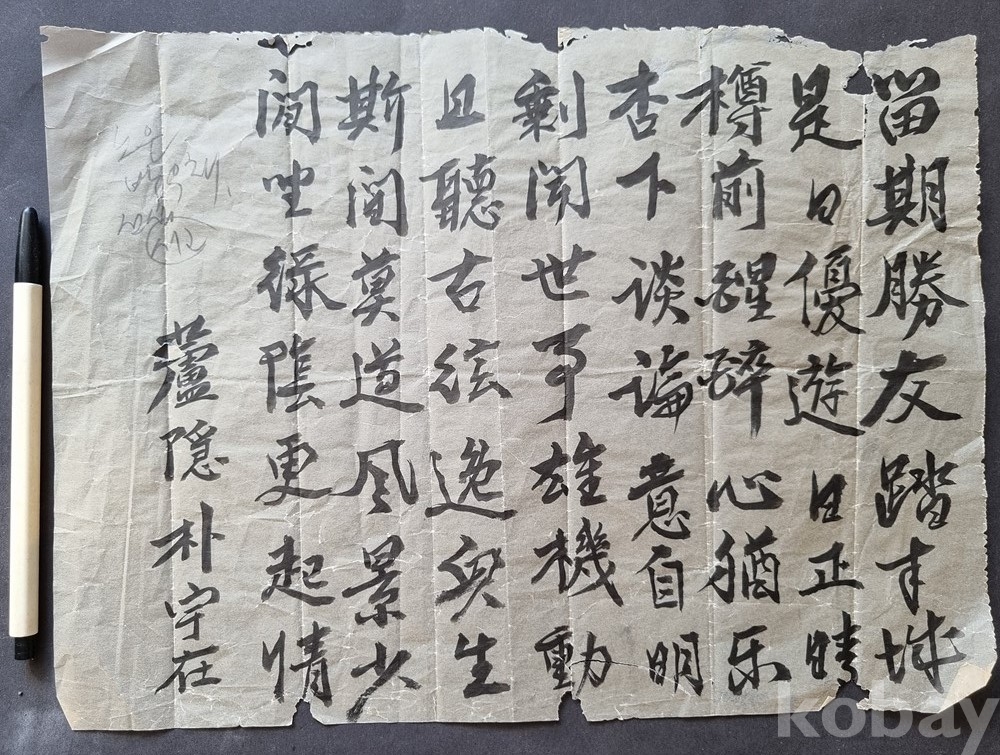 留期勝友踏城
是日優遊日正晴
樽前醒醉心猶乐
杏下谈論意自明
剩聞世事雄機動
且聽古絃逸興生
斯間莫道风景少
閒坐綠陰更起情
蘆隱朴宇在
노은
kobay